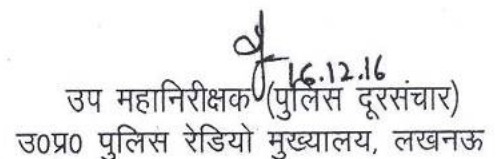 16.12.16
उप महानिरीक्षक (पुलिस दूरसंचार)
उ०प्र० पुलिस रेडियो मुख्यालय, लखनऊ